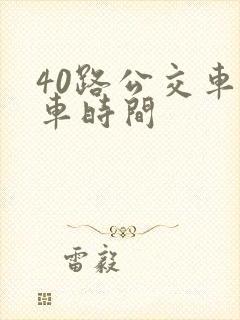 40路公交車
車時間
雷毅